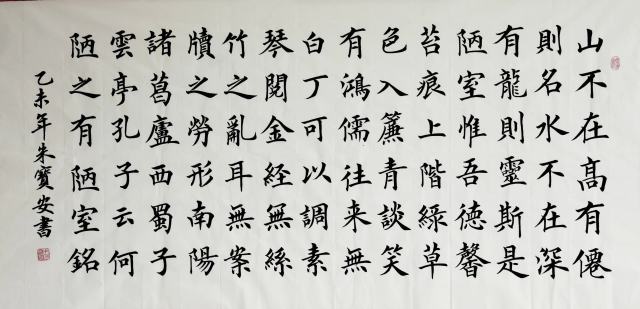 山不在高有僊
則名水不在深
有龍則靈斯是
陋室惟吾德馨
苔痕上階綠草
色入簾青談笑
有鴻儒往来無
白丁可以調素
琴閱金經無絲
竹之亂耳無案
牘之勞形南陽
諸葛廬西蜀子
雲亭孔子云何
陋之有陋室銘
乙未年朱寶安書